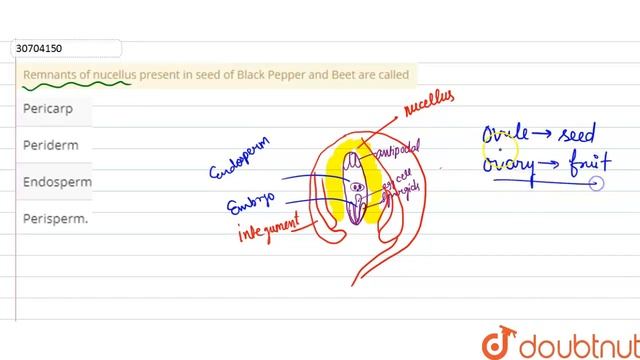 30704150
Remnants of nucellus present in seed of Black Pepper and Beet are called
Pericarp
Periderm
Endosperm
Perisperm.
nucellus
Endosperm
antipodal
egg cell
Synergids
Embryo
integument
Ovule → seed
Ovary → fruit
doubtnut